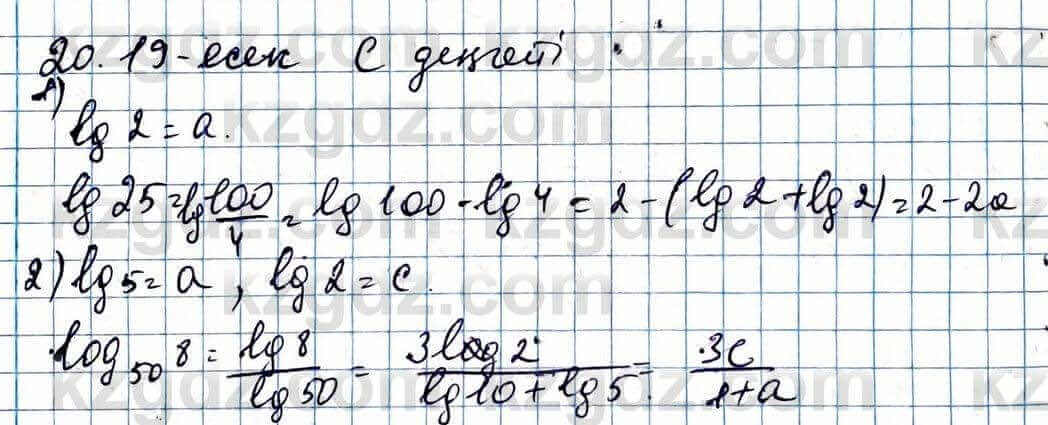 20.19-есеп С деңгейі
1)
lg 2 = a.
lg 25 = lg 100/4 = lg 100 - lg 4 = 2 - (lg 2 + lg 2) = 2 - 2a
2) lg 5 = a, lg 2 = c.
log₅₀ 8 = lg 8 / lg 50 = 3 log 2 / lg 10 + lg 5 = 3c / 1+a
kzgdz.com